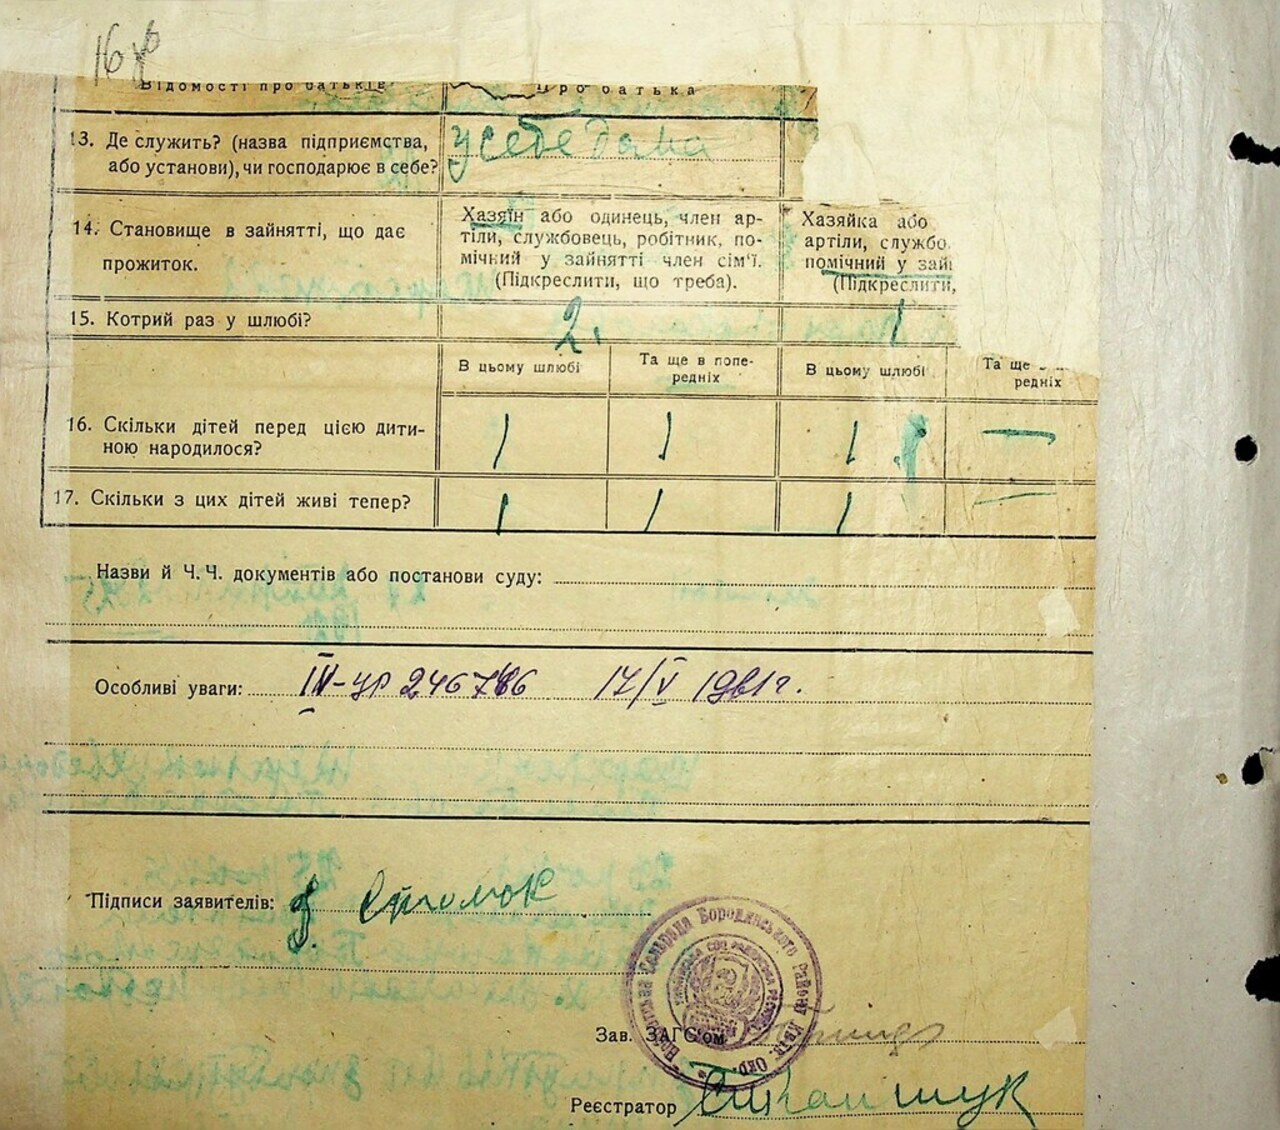 16 зв
Відомості про батьків
Про батька
13. Де служить? (назва підприємства,
або установи), чи господарює в себе?
у себе дома
14. Становище в зайнятті, що дає
прожиток.
Хазяїн або одинець, член ар-
тілі, службовець, робітник, по-
мічний у зайнятті член сім'ї.
(Підкреслити, що треба).
Хазяйка або
артілі, службо
помічний у зай
(Підкреслити,
15. Котрий раз у шлюбі?
2.
1
В цьому шлюбі
Та ще в попе-
редніх
В цьому шлюбі
Та ще в
редніх
16. Скільки дітей перед цією дити-
ною народилося?
1 1 1 —
17. Скільки з цих дітей живі тепер?
1 1 1 —
Назви й Ч.Ч. документів або постанови суду:
Особливі уваги: IV-УР 246786 17/V 1961 г.
Підписи заявителів:
Бородянського Району Київ. Окр.
Зав. ЗАГС'ом
Реєстратор